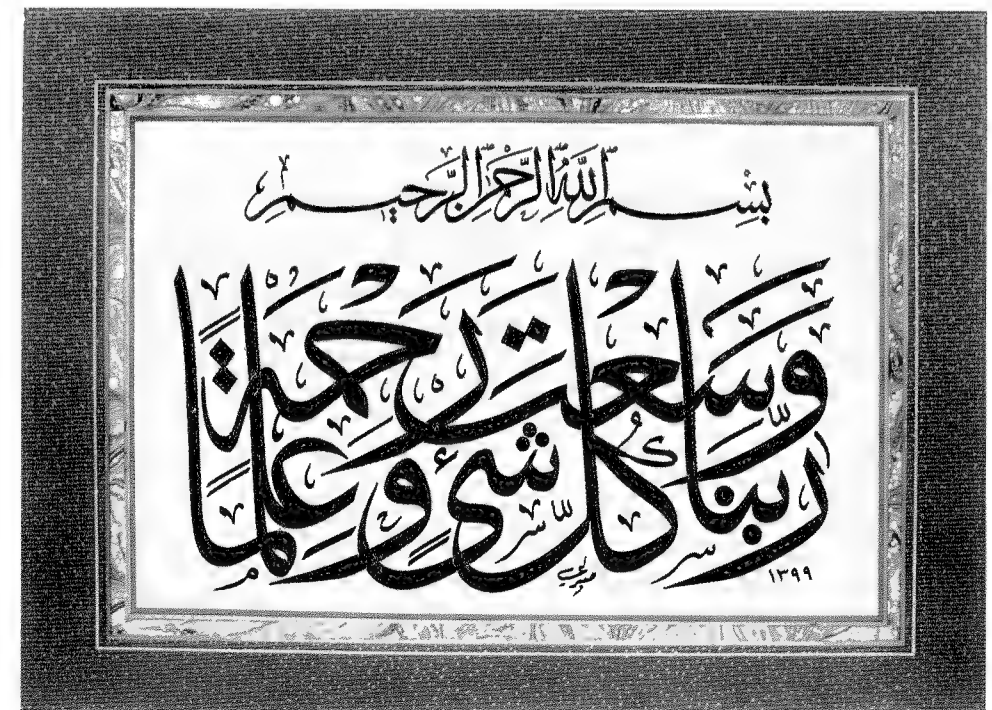 بِسْمِ اللَّهِ الرَّحْمَٰنِ الرَّحِيمِ
رَبَّنَا وَسِعْتَ كُلَّ شَيْءٍ رَحْمَةً وَعِلْمًا
١٣٩٩